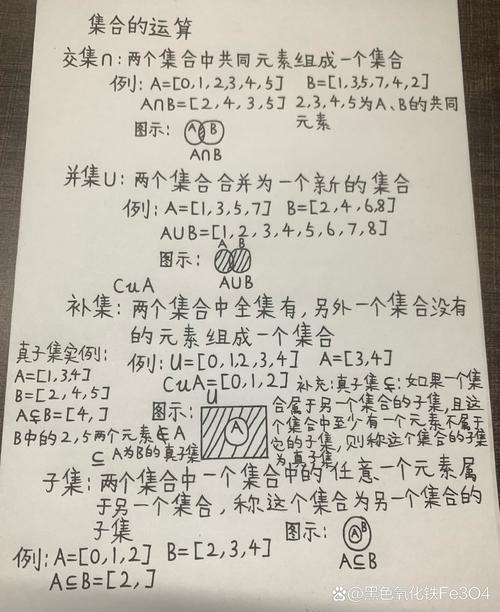 集合的运算
交集∩:两个集合中共同元素组成一个集合
例:A=[0,1,2,3,4,5] B=[1,3,5,7,4,2]
A∩B=[2,4,3,5] 2,3,4,5为A、B的共同
元素
图示: A B
A∩B
并集∪:两个集合合并为一个新的集合
例:A=[1,3,5,7] B=[2,4,6,8]
A∪B=[1,2,3,4,5,6,7,8]
图示: A B
A∪B
CuA
补集:两个集合中全集有,另外一个集合没有
的元素组成一个集合
例:U=[0,1,2,3,4] A=[3,4]
CuA=[0,1,2]
图示: U A
补充:真子集⊊:如果一个集
合属于另一个集合的子集,且这
个集合中至少有一个元素不属于
它的子集,则称这个集合的子集
为真子集
真子集实例:
A=[1,3,4]
B=[2,4,5]
A⊊B=[4,]
B中的2,5两个元素∉A
⊆ A为B的真子集
子集:两个集合中一个集合中的任意一个元素属
于另一个集合,称这个集合为另一个集合的
子集
图示: A B
A⊆B
例:A=[0,1,2] B=[2,3,4]
A⊆B=[2,]
@黑色氧化铁Fe3O4